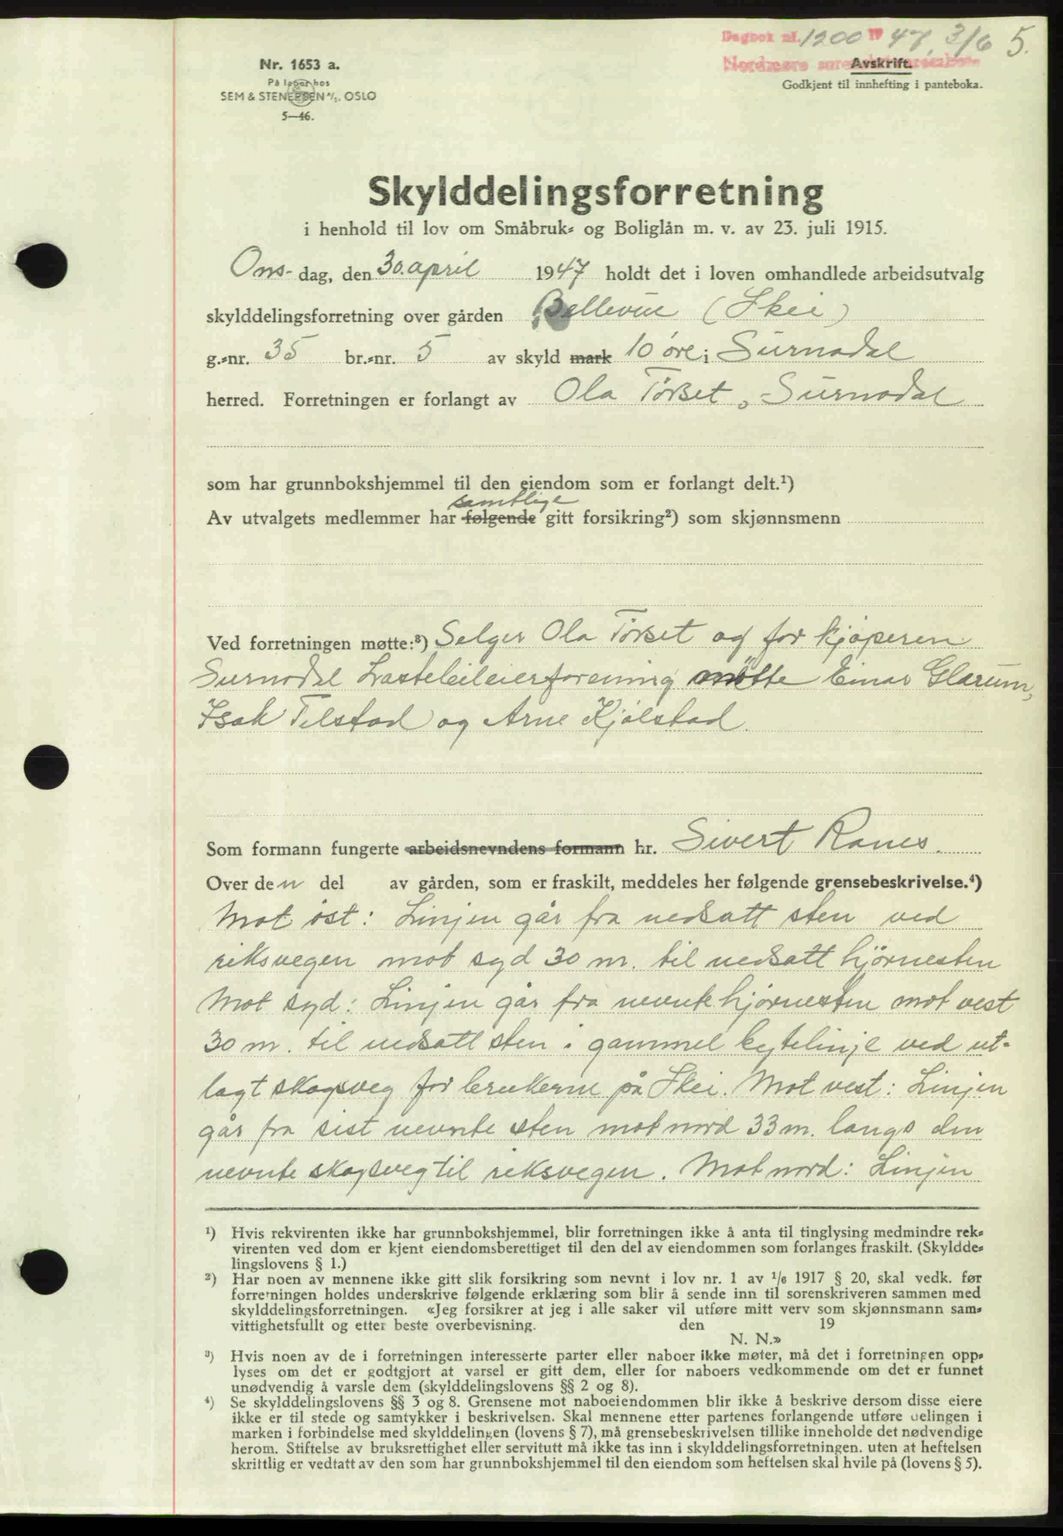 Dagbok nr. 1200 1947, 3/6 5.
Nr. 1653 a.
Nordmøre sorenskriverembete
Avskrift.
På lager hos
Godkjent til innhefting i panteboka.
SEM & STENERSEN A/S, OSLO
5—46.
Skylddelingsforretning
i henhold til lov om Småbruk- og Boliglån m. v. av 23. juli 1915.
Ons- dag, den 30. april 1947 holdt det i loven omhandlede arbeidsutvalg
skylddelingsforretning over gården Bellevue (Skei)
g.-nr. 35 br.-nr. 5 av skyld mark 10 øre i Surnadal
herred. Forretningen er forlangt av Ola Törset, Surnadal
som har grunnbokshjemmel til den eiendom som er forlangt delt.¹)
samtlige
Av utvalgets medlemmer har følgende gitt forsikring²) som skjønnsmenn
Ved forretningen møtte:³) Selger Ola Törset og for kjøperen
Surnadal Lastebileierforening møtte Einar Glærum,
Isak Telstad og Arne Kjølstad.
Som formann fungerte arbeidsnevndens formann hr. Sivert Ranes.
Over den del av gården, som er fraskilt, meddeles her følgende grensebeskrivelse.⁴)
Mot öst: Linjen går fra nedsatt sten ved
riksvegen mot syd 30 m. til nedsatt hjörnesten
Mot syd: Linjen går fra nevnte hjörnesten mot vest
30 m. til nedsatt sten i gammel bytelinje ved ut-
lagt skogsveg for brukerne på Skei. Mot vest: Linjen
går fra sist nevnte sten mot nord 33 m. langs den
nevnte skogsveg til riksvegen. Mot nord: Linjen
¹) Hvis rekvirenten ikke har grunnbokshjemmel, blir forretningen ikke å anta til tinglysing medmindre rek-
virenten ved dom er kjent eiendomsberettiget til den del av eiendommen som forlanges fraskilt. (Skyldde-
lingslovens § 1.)
²) Har noen av mennene ikke gitt slik forsikring som nevnt i lov nr. 1 av 1/6 1917 § 20, skal vedk. før
forretningen holdes underskrive følgende erklæring som blir å sende inn til sorenskriveren sammen med
skylddelingsforretningen. «Jeg forsikrer at jeg i alle saker vil utføre mitt verv som skjønnsmann sam-
vittighetsfullt og etter beste overbevisning. den 19
N. N.»
³) Hvis noen av de i forretningen interesserte parter eller naboer ikke møter, må det i forretningen opp-
lyses om det er godtgjort at varsel er gitt dem, eller for naboers vedkommende om det er funnet
unødvendig å varsle dem (skylddelingslovens §§ 2 og 8).
⁴) Se skylddelingslovens §§ 3 og 8. Grensene mot naboeiendommen blir ikke å beskrive dersom disse eiere
ikke er til stede og samtykker i beskrivelsen. Skal mennene etter partenes forlangende utføre delingen i
marken i forbindelse med skylddelingen (lovens § 7), må grensebeskrivelsen tillike inneholde det nødvendige
herom. Stiftelse av bruksrettighet eller servitutt må ikke tas inn i skylddelingsforretningen, uten at heftelsen
skriftlig er vedtatt av den som har grunnbokshjemmel til den eiendom som heftelsen skal hvile på (lovens § 5).